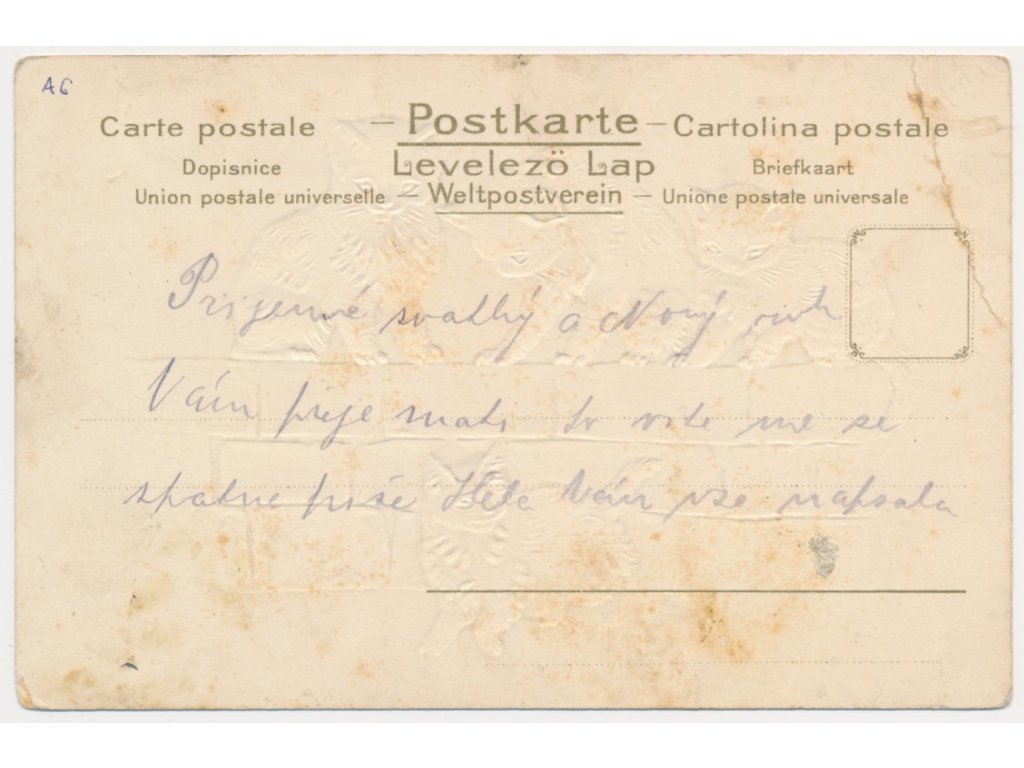 A6
Carte postale — Postkarte — Cartolina postale
Dopisnice Levelező Lap Briefkaart
Union postale universelle — Weltpostverein — Unione postale universale
Prijemné svatky a Nový rok
Vám přeje mati to vite me se
spatne piše Hela Vám vse napsala